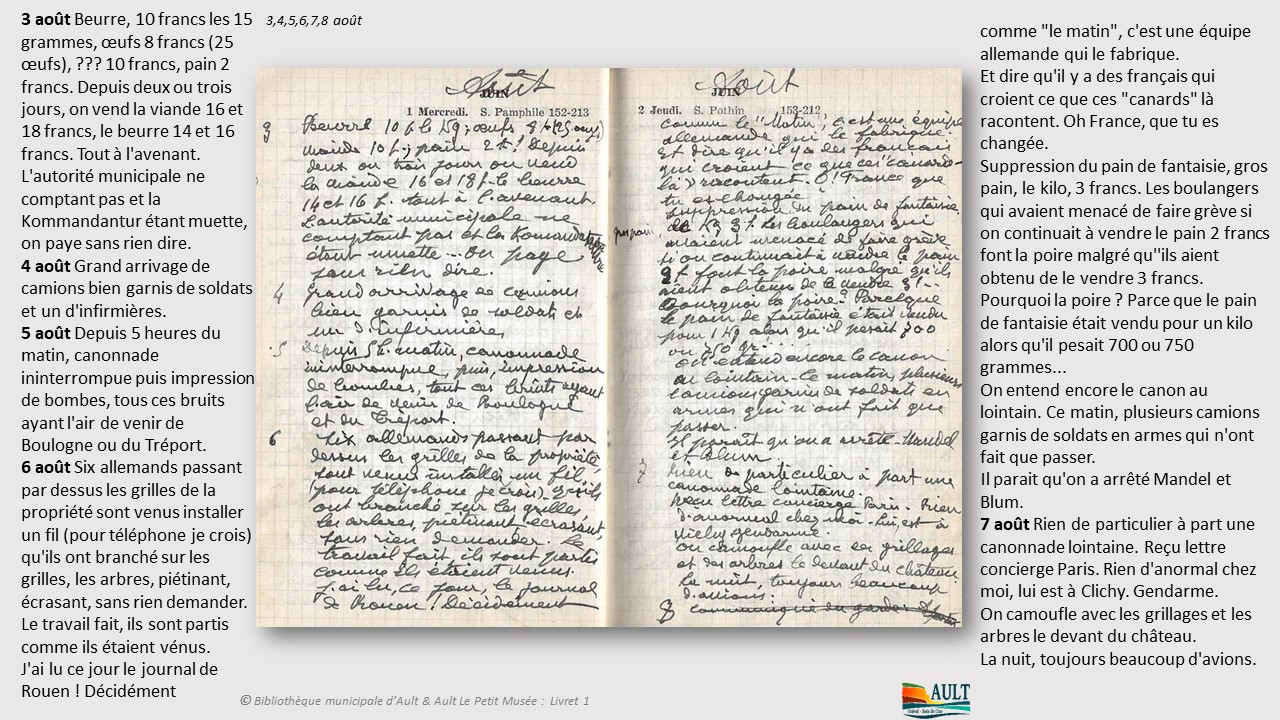 3 août Beurre, 10 francs les 15
grammes, œufs 8 francs (25
œufs), ??? 10 francs, pain 2
francs. Depuis deux ou trois
jours, on vend la viande 16 et
18 francs, le beurre 14 et 16
francs. Tout à l'avenant.
L'autorité municipale ne
comptant pas et la
Kommandantur étant muette,
on paye sans rien dire.
4 août Grand arrivage de
camions bien garnis de soldats
et un d'infirmières.
5 août Depuis 5 heures du
matin, canonnade
ininterrompue puis impression
de bombes, tous ces bruits
ayant l'air de venir de
Boulogne ou du Tréport.
6 août Six allemands passant
par dessus les grilles de la
propriété sont venus installer
un fil (pour téléphone je crois)
qu'ils ont branché sur les
grilles, les arbres, piétinant,
écrasant, sans rien demander.
Le travail fait, ils sont partis
comme ils étaient vénus.
J'ai lu ce jour le journal de
Rouen ! Décidément
3,4,5,6,7,8 août
Août
JUIN
1 Mercredi. S. Pamphile 152-213
3 Beurre 10 f. le kg ; œufs 8 f. (25 œufs)
viande 10 f. ; pain 2 f. ! Depuis
deux ou trois jours on vend
la viande 16 et 18 f. le beurre
14 et 16 f. tout à l'avenant.
L'autorité municipale ne
comptant pas et la Komandantur
étant muette... On paye
sans rien dire.
4 Grand arrivage de camions
bien garnis de soldats et
un d'infirmières.
5 Depuis 5 h. matin, canonnade
ininterrompue, puis, impression
de bombes, tout ces bruits ayant
l'air de venir de Boulogne
et du Tréport.
6 Six allemands passant par
dessus les grilles de la propriété
sont venus installer un fil
(pour téléphone je crois) qu'ils
ont branché sur les grilles,
les arbres, piétinant, écrasant,
sans rien demander. Le
travail fait, ils sont partis
comme ils étaient venus.
J'ai lu, ce jour, le journal
de Rouen ! Décidément
Août
JUIN
2 Jeudi. S. Pothin 153-212
comme le "Matin", c'est une équipe
allemande qui le fabrique.
Et dire qu'il y a des français
qui croient ce que ces "canards-
là" racontent. O ! France que
tu es changée.
Suppression du pain de fantaisie.
gros pain, le kg 3 f. Les boulangers qui
avaient menacé de faire grève
si on continuait à vendre le pain
2 f font la poire malgré qu'ils
aient obtenu de le vendre 3 f...
Pourquoi la poire ? Parce que
le pain de fantaisie était vendu
pour 1 kg alors qu'il pesait 700
ou 750 gr...
On entend encore le canon
au lointain. Ce matin, plusieurs
camions garnis de soldats en
armes qui n'ont fait que
passer.
Il paraît qu'on a arrêté Mandel
et Blum.
7 Rien de particulier à part une
canonnade lointaine.
Reçu lettre concierge Paris. Rien
d'anormal chez moi. Lui, est à
Clichy gendarme.
On camoufle avec ses grillages
et des arbres le devant du château.
La nuit, toujours beaucoup
d'avions.
8 communiqué du garde
comme "le matin", c'est une équipe
allemande qui le fabrique.
Et dire qu'il y a des français qui
croient ce que ces "canards" là
racontent. Oh France, que tu es
changée.
Suppression du pain de fantaisie, gros
pain, le kilo, 3 francs. Les boulangers
qui avaient menacé de faire grève si
on continuait à vendre le pain 2 francs
font la poire malgré qu''ils aient
obtenu de le vendre 3 francs.
Pourquoi la poire ? Parce que le pain
de fantaisie était vendu pour un kilo
alors qu'il pesait 700 ou 750
grammes...
On entend encore le canon au
lointain. Ce matin, plusieurs camions
garnis de soldats en armes qui n'ont
fait que passer.
Il parait qu'on a arrêté Mandel et
Blum.
7 août Rien de particulier à part une
canonnade lointaine. Reçu lettre
concierge Paris. Rien d'anormal chez
moi, lui est à Clichy. Gendarme.
On camoufle avec les grillages et les
arbres le devant du château.
La nuit, toujours beaucoup d'avions.
© Bibliothèque municipale d'Ault & Ault Le Petit Musée : Livret 1
AULT